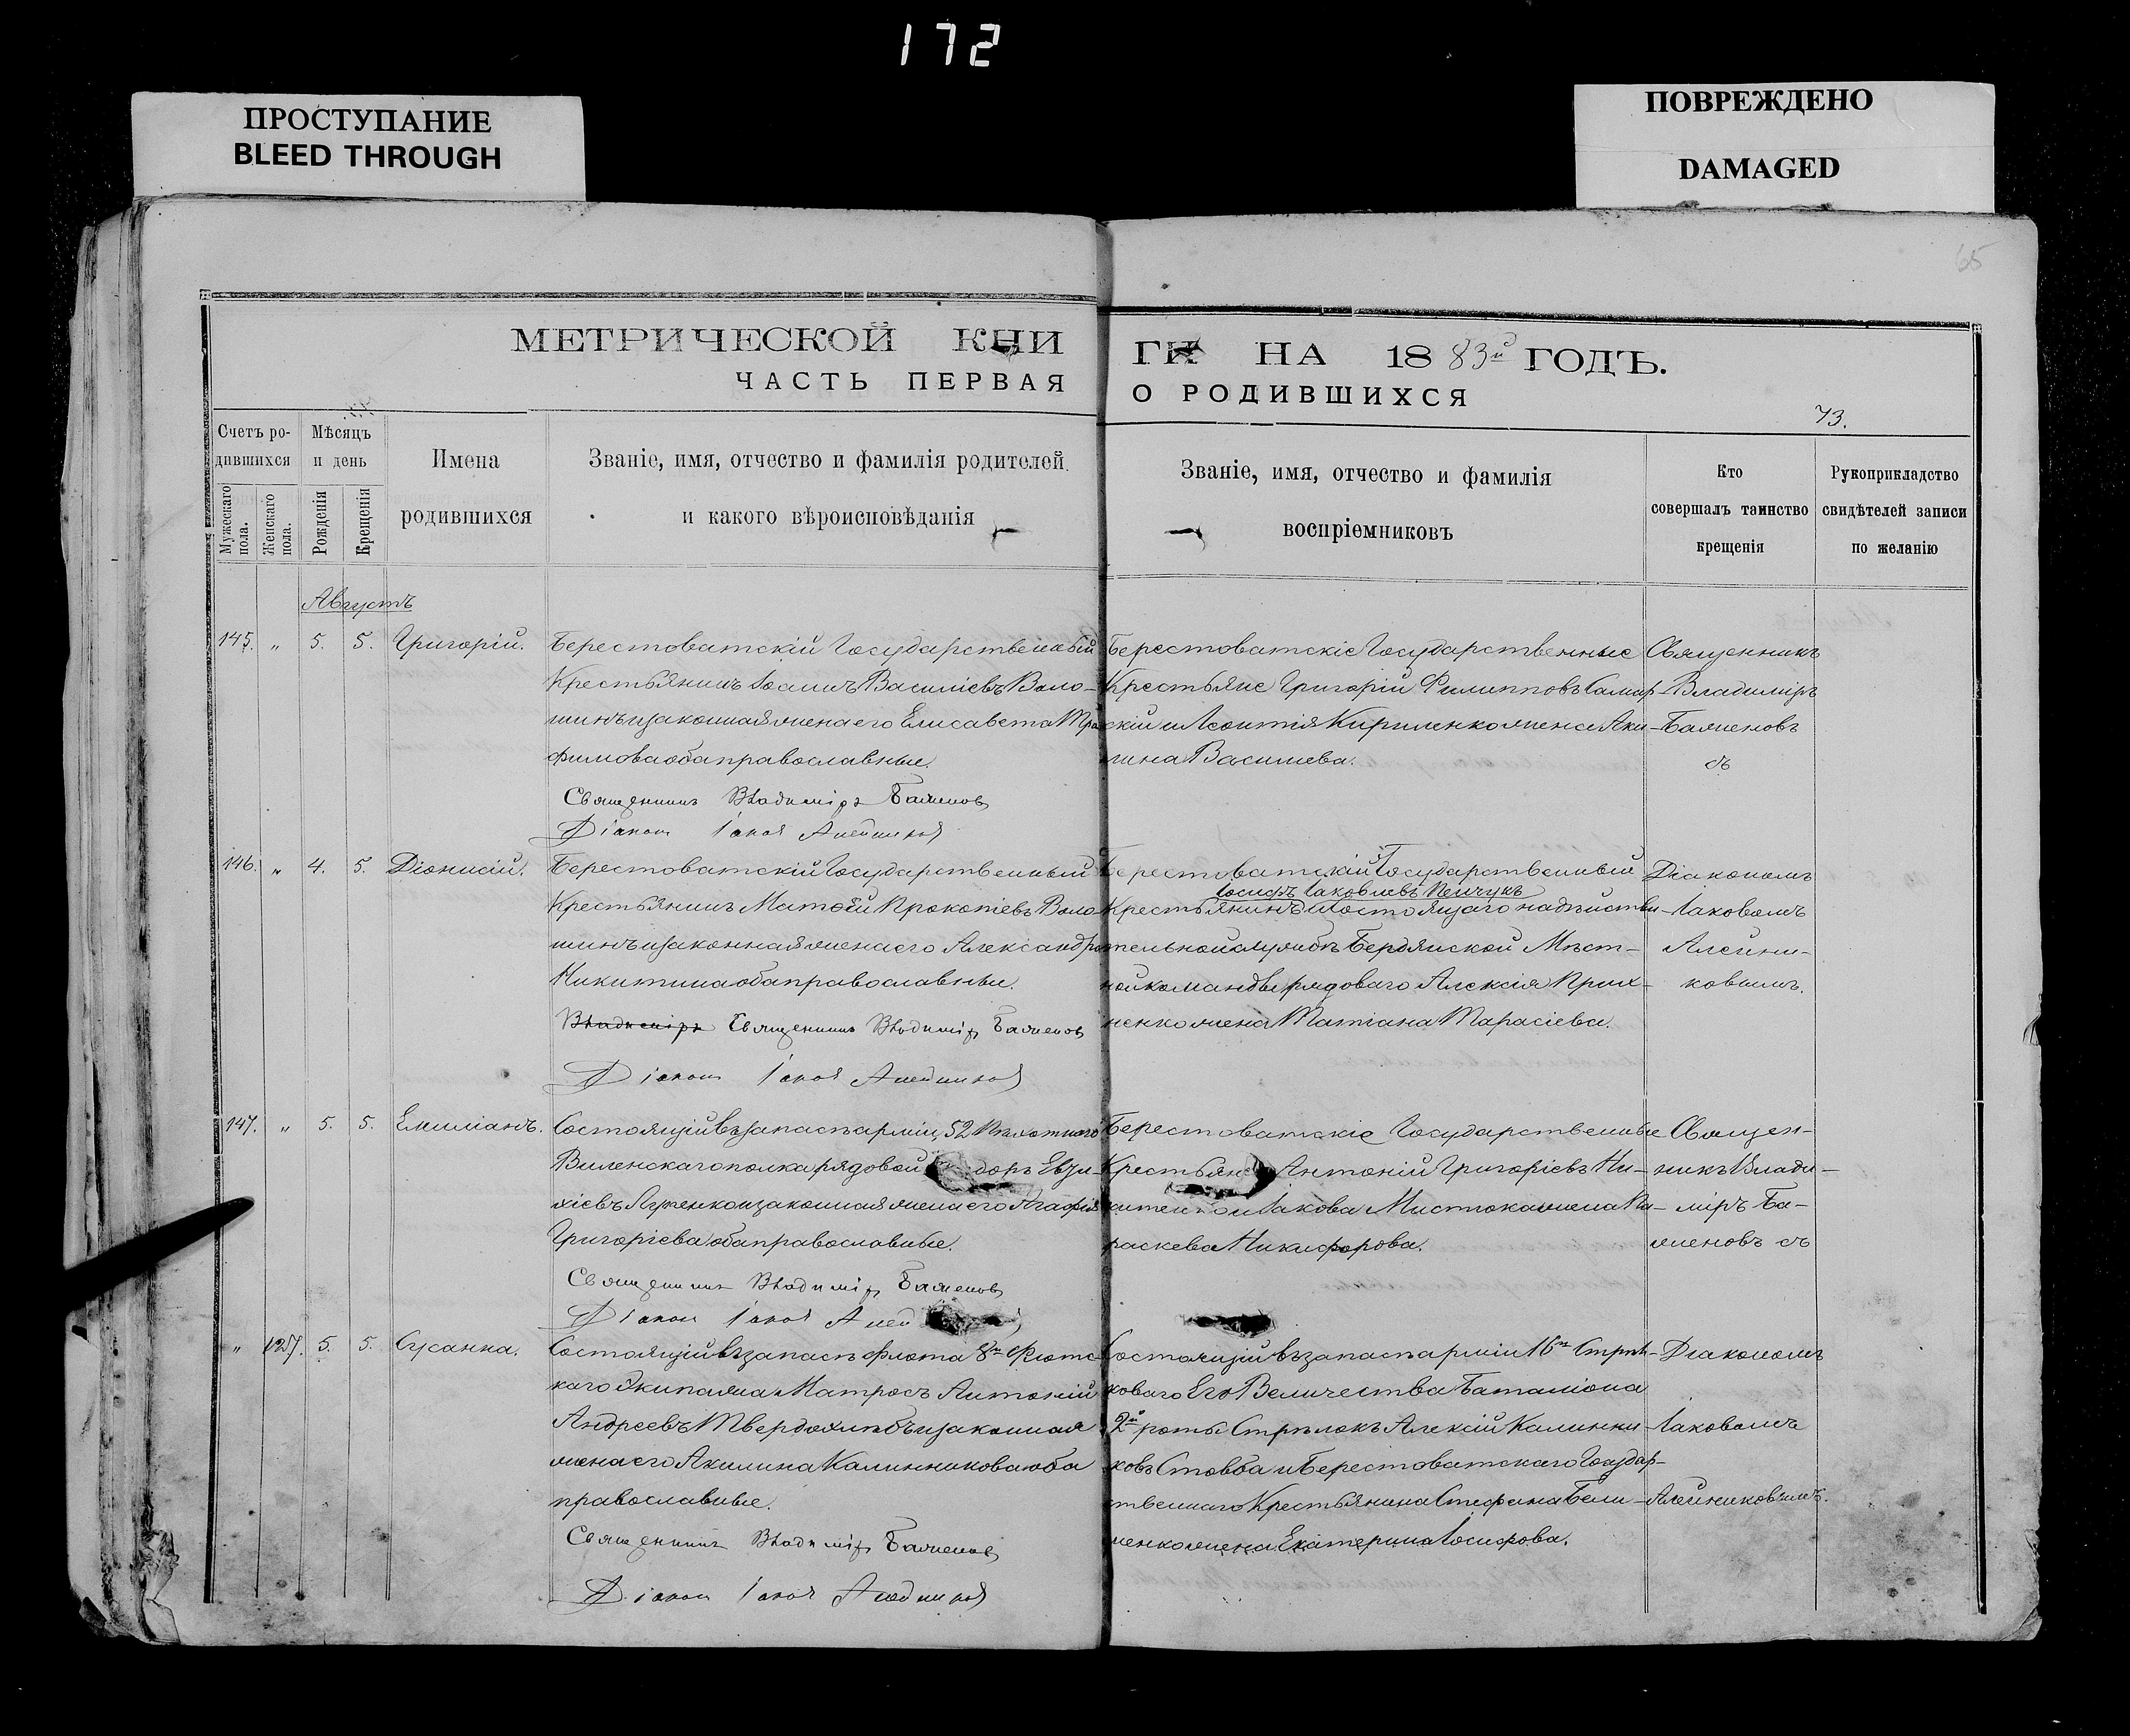 172
ПРОСТУПАНИЕ
BLEED THROUGH
ПОВРЕЖДЕНО
DAMAGED
65
МЕТРИЧЕСКОЙ КНИ
ЧАСТЬ ПЕРВАЯ
ГИ НА 1883й ГОДЪ.
О РОДИВШИХСЯ
73.
Счетъ ро-
дившихся
Мужескаго пола.
Женскаго пола.
Мѣсяцъ
и день
Рожденія
Крещенія
Имена
родившихся
Званіе, имя, отчество и фамилія родителей
и какого вѣроисповѣданія
Званіе, имя, отчество и фамилія
воспріемниковъ
Кто
совершалъ таинство
крещенія
Рукоприкладство
свидѣтелей записи
по желанію
Августъ
145. " 5. 5. Григорій.
Берестоватскій Государственный
Крестьянинъ Іоаннъ Василіевъ Воло-
шинъ и законная жена его Елисавета Тро
фимова оба православные.
Священникъ Владиміръ Баженовъ
Діаконъ Іаковъ Алейниковъ
Берестоватскіе Государственные
Крестьяне Григорій Филипповъ
скій и Леонтія Кириленко жена Аки-
лина Васильева.
Священникъ
Владиміръ
Баженовъ
съ
146. " 4. 5. Діонисій.
Берестоватскій Государственный
Крестьянинъ Матѳей Прокопіевъ Воло
шинъ и законная жена его Александра
Никитина оба православные.
Владиміръ Священникъ Владиміръ Баженовъ
Діаконъ Іаковъ Алейниковъ
Берестоватскій Государственный
Іосифъ Іаковлевъ
Крестьянинъ и состоящаго на дѣйстви-
тельной службѣ Бердянской Мѣст-
ной команды рядоваго Алексія
ненко жена Татіана Тарасіева.
Діакономъ
Іаковомъ
Алейни-
ковымъ.
147. " 5. 5. Емиліанъ.
Состоящій въ запасѣ арміи, 52 Пѣхотнаго
Виленскаго полка рядовой доръ Евти-
хіевъ и законная жена его Агафія
Григоріева оба православные.
Священникъ Владиміръ Баженовъ
Діаконъ Іаковъ Алей
Берестоватскіе Государственные
Крестьяне Антоній Григоріевъ Ни-
китенко и Іакова жена Па-
раскева Никифорова.
Священ-
никъ Влади-
міръ Ба-
женовъ съ
" 127. 5. 5. Сусанна.
Состоящій въ запасѣ флота 8го Флотс-
каго Экипажа Матросъ Антоній
Андреевъ Твердохлѣбъ и законная
жена его Акилина Калинникова оба
православные.
Священникъ Владиміръ Баженовъ
Діаконъ Іаковъ Алейниковъ
Состоящій въ запасѣ арміи 16го Стрѣл-
коваго Его Величества Баталіона
2й роты Стрѣлокъ Алексій Калинни-
ковъ Стовба и Берестоватскаго Государ-
ственнаго Крестьянина Стефана Бели-
ченко жена Екатерина Іосифова.
Діакономъ
Іаковомъ
Алейниковымъ.